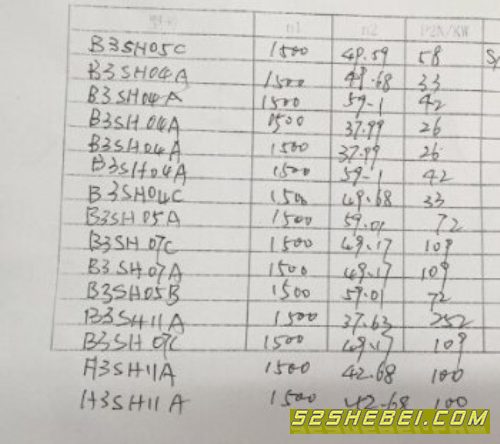 n1 n2 P2N/KW
B3SH05C 1500 49.59 58
B3SH04A 1500 49.68 33
B3SH04A 1500 59.1 42
B3SH04A 1500 37.99 26
B3SH04A 1500 37.99 26
B3SH04A 1500 59.1 42
B3SH04C 1500 49.68 33
B3SH05A 1500 59.01 72
B3SH07C 1500 49.17 109
B3SH07A 1500 49.17 109
B3SH05B 1500 59.01 72
B3SH11A 1500 37.63 252
B3SH07C 1500 49.17 109
H3SH11A 1500 42.68 100
H3SH11A 1500 42.68 100
52SHEBEI.COM